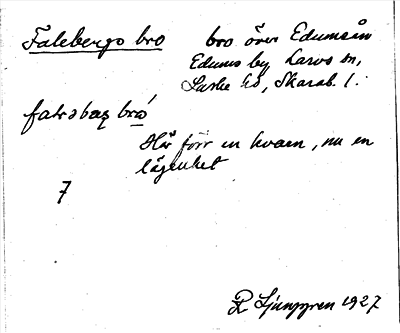 Falebergs bro bro över Edumsån
Edums by, Larvs sn,
Laske hd, Skarab. l.
falsbæg bro
Här förr en kvarn, nu en
lägenhet
7
R Ljunggren 1927